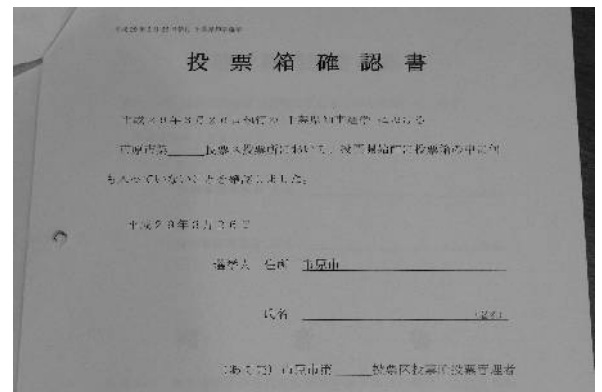 投票箱確認書
平成29年3月26日執行の 千葉県知事選挙 における
市原市第____投票区投票所において、投票開始前に投票箱の中に何
も入っていないことを確認しました。
平成29年3月26日
選挙人 住所 市原市
氏名 (署名)
(あて先) 市原市第____投票区投票所投票管理者